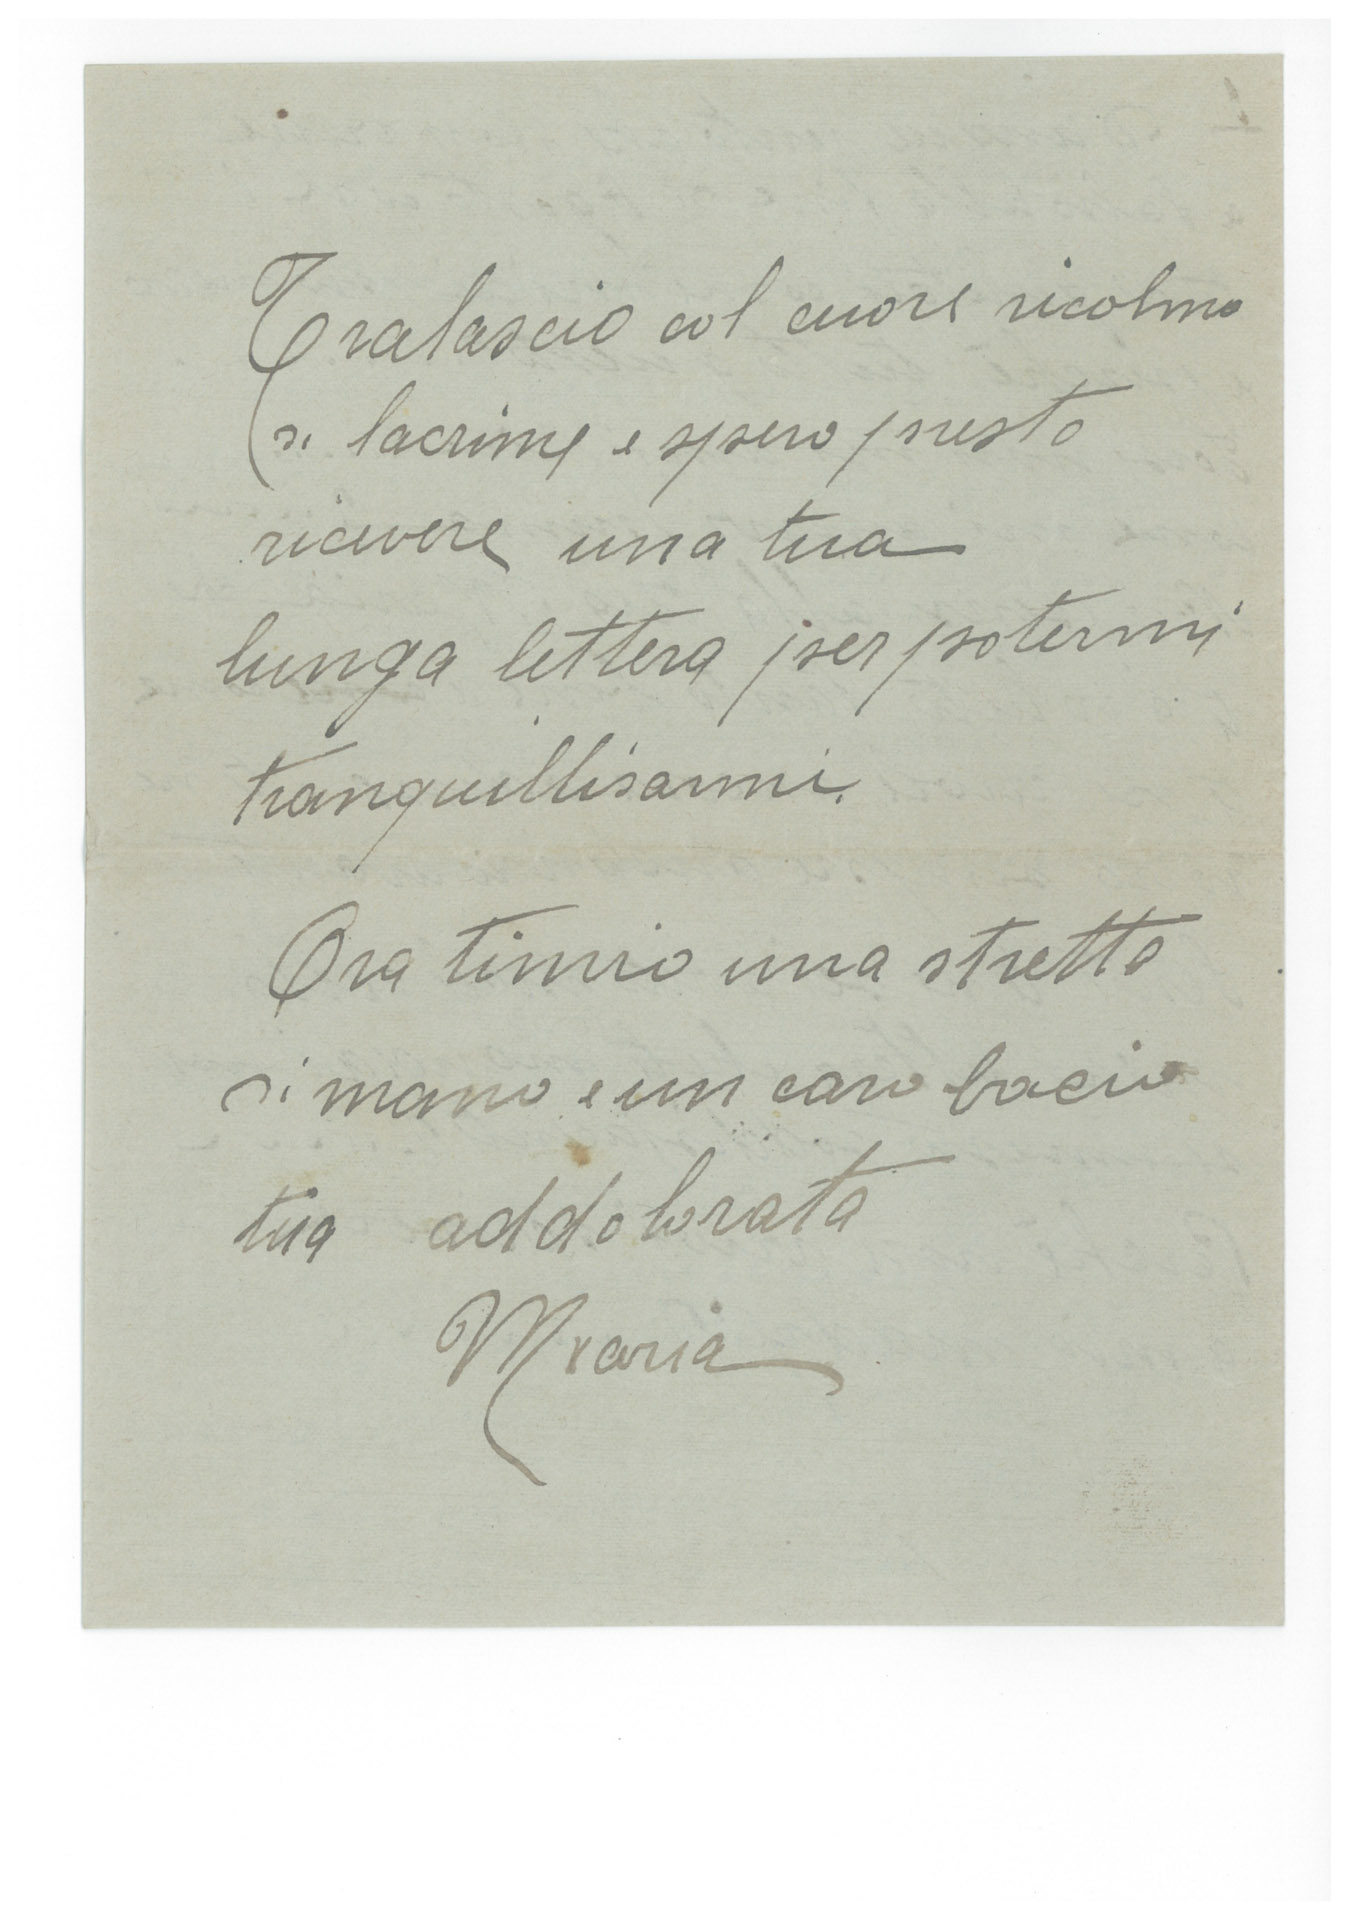 Tralascio col cuore ricolmo
di lacrime e spero presto
ricevere una tua
lunga lettera per potermi
tranquillisarmi.
Ora tinvio una stretta
di mano e un caro bacio
tua addolorata
Maria